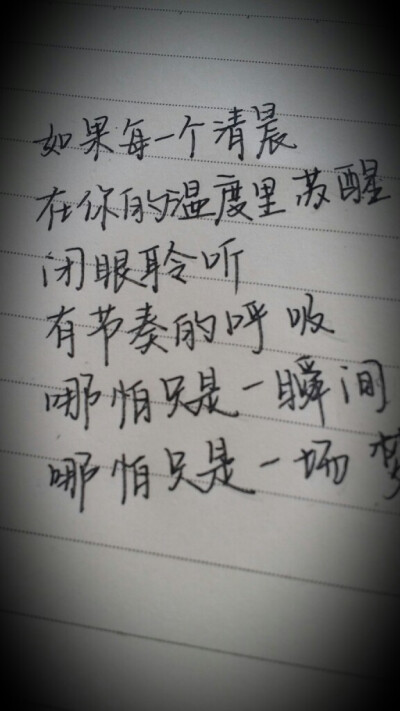 如果每一个清晨
在你的温度里苏醒
闭眼聆听
有节奏的呼吸
哪怕只是一瞬间
哪怕只是一场梦